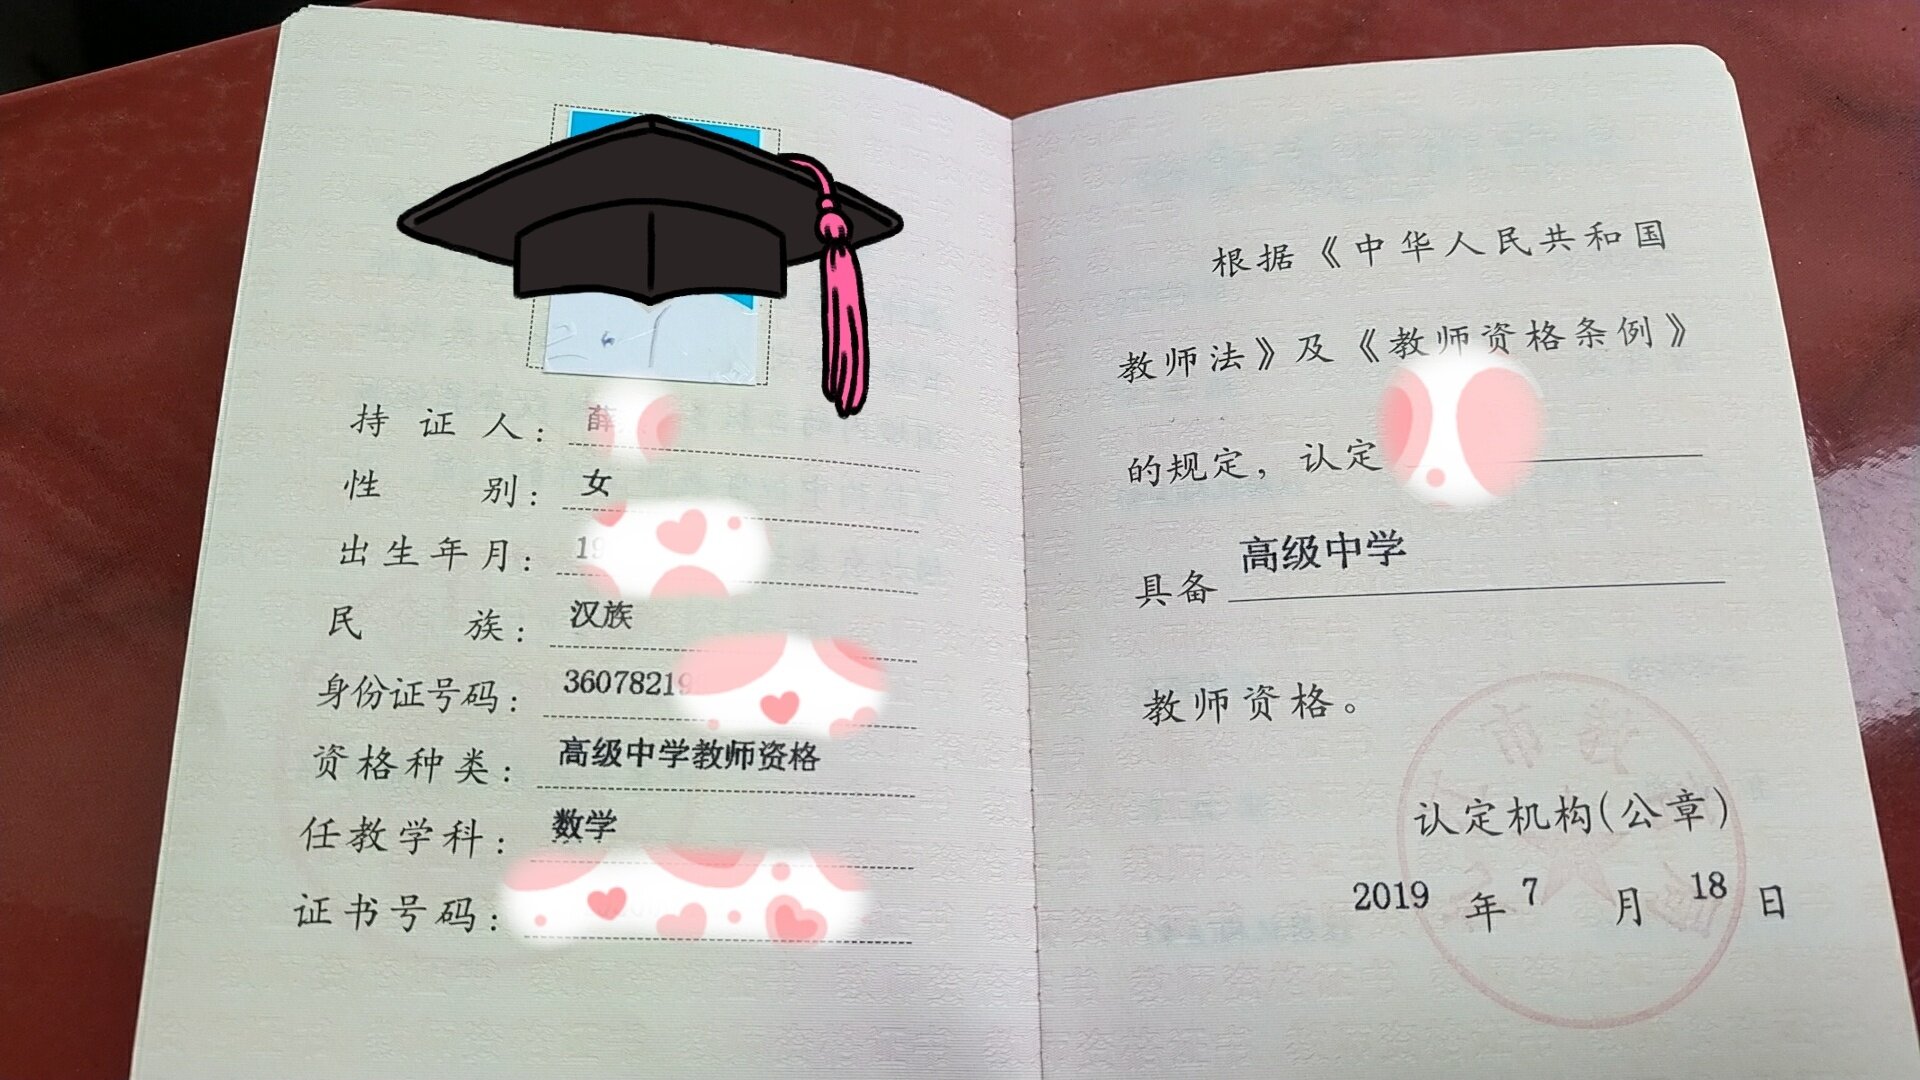 持证人：薛
性别：女
出生年月：19
民族：汉族
身份证号码：36078219
资格种类：高级中学教师资格
任教学科：数学
证书号码：
根据《中华人民共和国
教师法》及《教师资格条例》
的规定，认定
具备 高级中学
教师资格。
认定机构(公章)
2019年7月18日